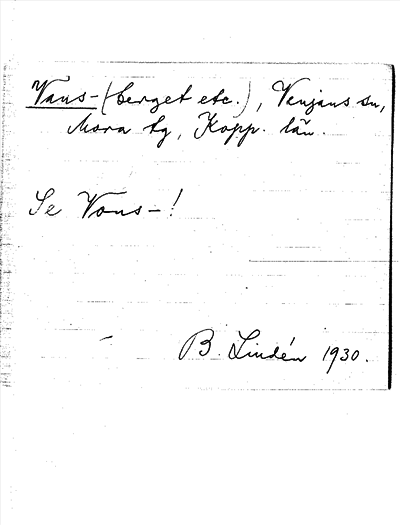 Vans- (berget etc.), Venjans sn,
Mora tg, Kopp. län.
Se Vons-!
B. Lindén 1930.